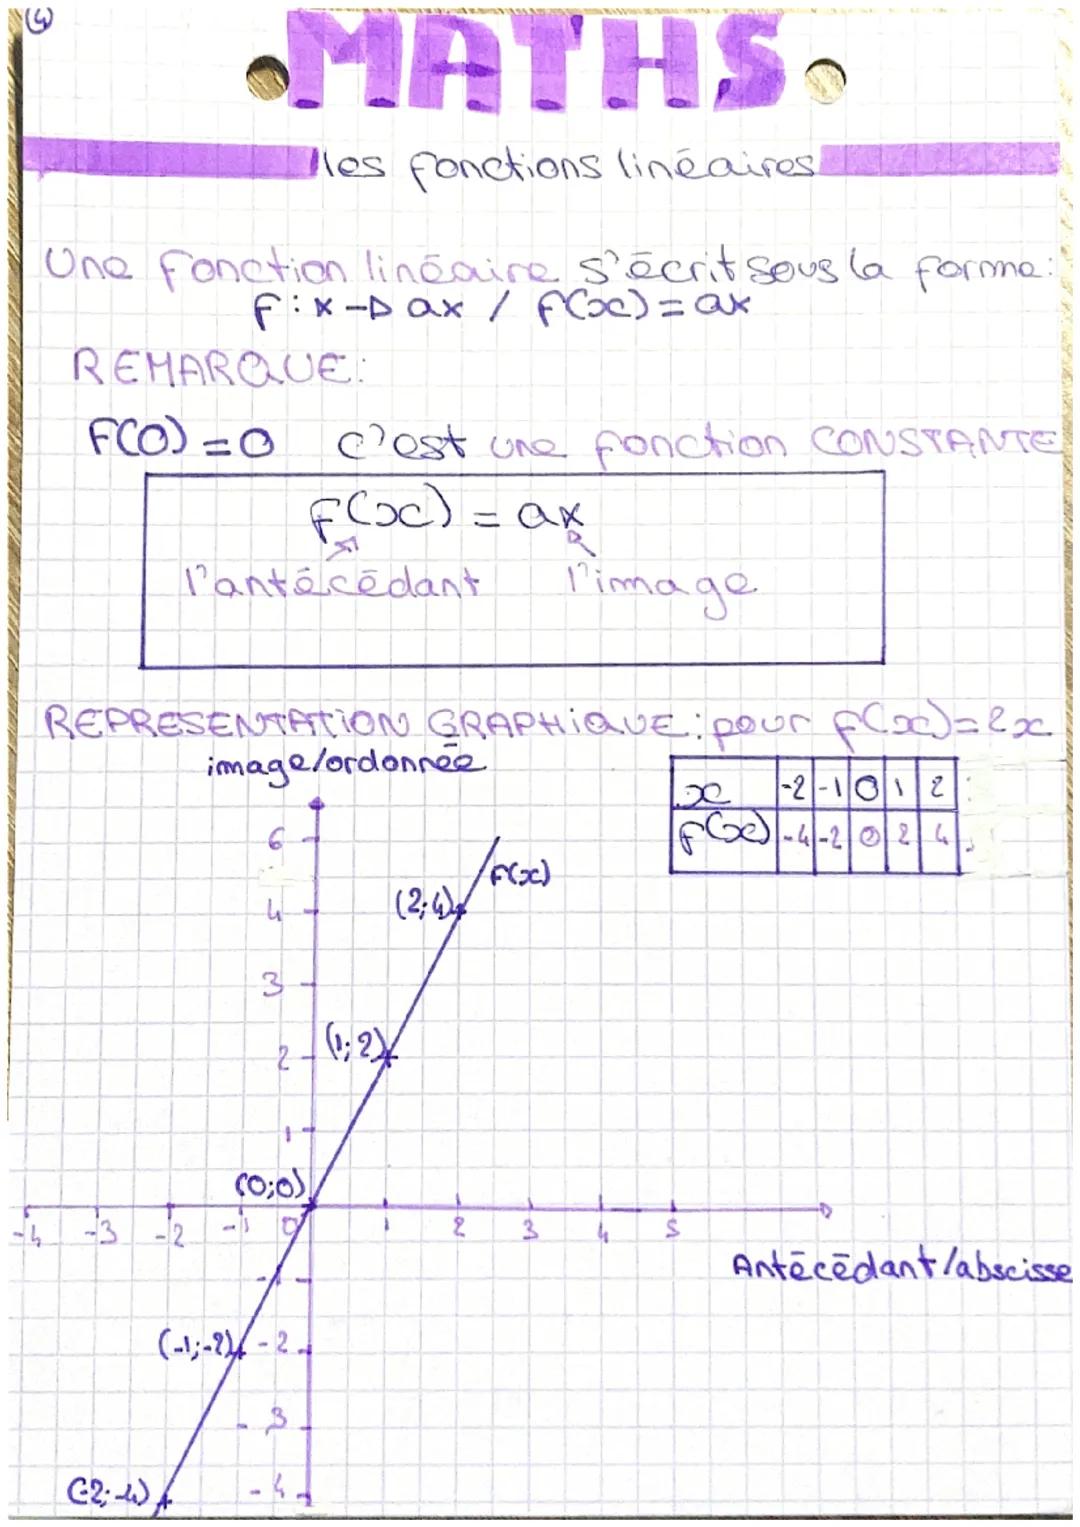 4
MATHS
les fonctions linéaires
Une fonction linéaire s'écrit sous la forme:
f: x → ax / f(x) = ax
REMARQUE:
F(0) = 0 c'est une fonction CONSTANTE
f(x) = ax
l'antécédant l'image
REPRESENTATION GRAPHIQUE: pour f(x)=2x
image/ordonnée
x -2 -1 0 1 2
f(x) -4 -2 0 2 4
6
F(x)
4 (2;4)
3
2 (1;2)
1
(0;0)
-4 -3 -2 -1 0 1 2 3 4 5
Antécédant/abscisse
-1
(-1;-2) -2
-3
(-2;-4) -4